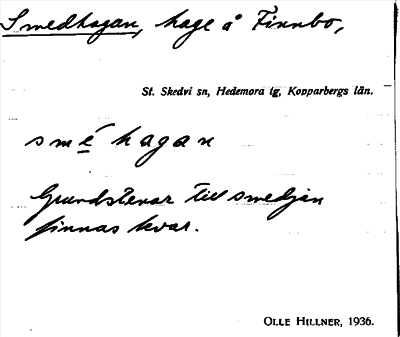 Smedhagan, hage å Finnbo,
St. Skedvi sn, Hedemora tg, Kopparbergs län.
smé hagan
Grundstenar till smedjan
finnas kvar.
OLLE HILLNER, 1936.